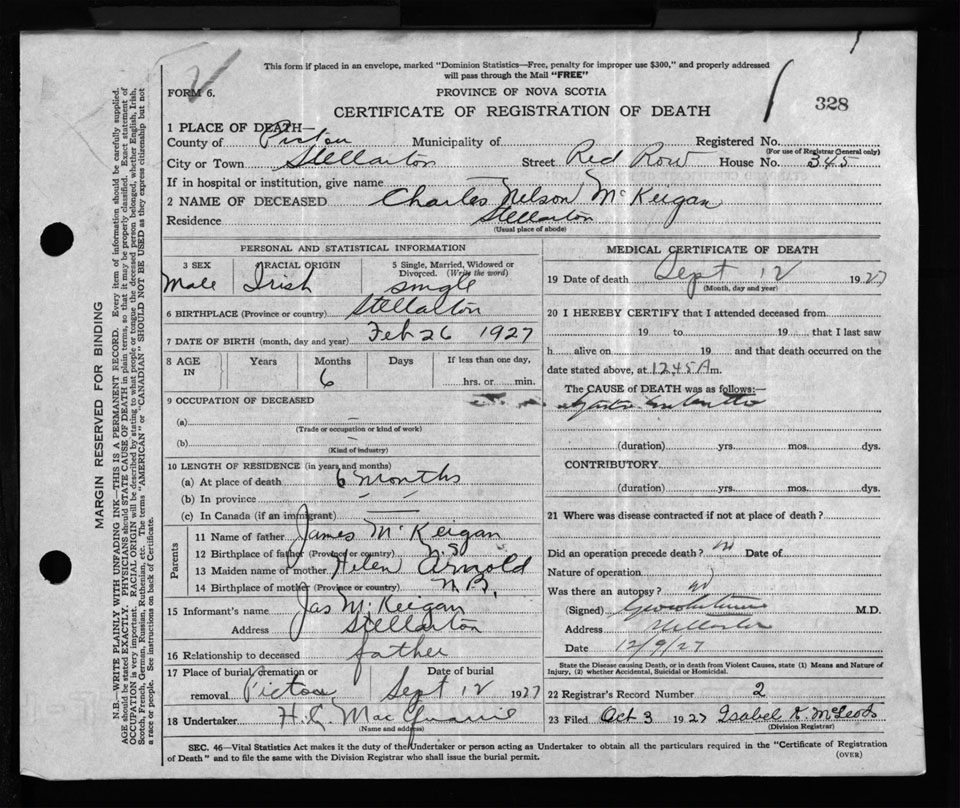 This form if placed in an envelope, marked "Dominion Statistics—Free, penalty for improper use $300," and properly addressed
will pass through the Mail "FREE"
FORM 6.
PROVINCE OF NOVA SCOTIA
CERTIFICATE OF REGISTRATION OF DEATH
328
1 PLACE OF DEATH—
County of Pictou Municipality of Registered No.
(For use of Registrar General only)
City or Town Stellarton Street Red Row House No. 345
If in hospital or institution, give name
2 NAME OF DECEASED Charles Nelson McKeigan
Residence Stellarton
(Usual place of abode)
PERSONAL AND STATISTICAL INFORMATION
3 SEX RACIAL ORIGIN 5 Single, Married, Widowed or Divorced. (Write the word)
Male Irish single
6 BIRTHPLACE (Province or country) Stellarton
7 DATE OF BIRTH (month, day and year) Feb 26 1927
8 AGE IN Years Months Days If less than one day,
6 hrs. or min.
9 OCCUPATION OF DECEASED
(a) —
(Trade or occupation or kind of work)
(b) —
(Kind of industry)
10 LENGTH OF RESIDENCE (in years and months)
(a) At place of death 6 months
(b) In province — —
(c) In Canada (if an immigrant) —
Parents
11 Name of father James McKeigan
12 Birthplace of father (Province or country) N.S
13 Maiden name of mother Helen Arnold
14 Birthplace of mother (Province or country) N.B.
15 Informant's name Jas McKeigan
Address Stellarton
16 Relationship to deceased father
17 Place of burial, cremation or removal Pictou Date of burial Sept 12 1927
18 Undertaker H.
(Name and address)
MEDICAL CERTIFICATE OF DEATH
19 Date of death Sept 12 1927
(Month, day and year)
20 I HEREBY CERTIFY that I attended deceased from
19 to 19 that I last saw
h alive on 19 and that death occurred on the
date stated above, at 12.45 A m.
The CAUSE of DEATH was as follows:—
(duration) yrs. mos. dys.
CONTRIBUTORY
(duration) yrs. mos. dys.
21 Where was disease contracted if not at place of death?
Did an operation precede death? no Date of
Nature of operation
Was there an autopsy? no
(Signed) M.D.
Address Stellarton
Date 12/9/27
State the Disease causing Death, or in death from Violent Causes, state (1) Means and Nature of
Injury, (2) whether Accidental, Suicidal or Homicidal.
22 Registrar's Record Number 2
23 Filed Oct 3 1927 Isabel K. McLeod
(Division Registrar)
SEC. 46—Vital Statistics Act makes it the duty of the Undertaker or person acting as Undertaker to obtain all the particulars required in the "Certificate of Registration
of Death" and to file the same with the Division Registrar who shall issue the burial permit.
(OVER)
MARGIN RESERVED FOR BINDING
N.B.—WRITE PLAINLY WITH UNFADING INK—THIS IS A PERMANENT RECORD. Every item of information should be carefully supplied.
AGE should be stated EXACTLY. PHYSICIANS should STATE CAUSE OF DEATH in plain terms, so that it may be properly classified. Exact statement of
OCCUPATION is very important. RACIAL ORIGIN will be described by stating to what people or tongue the deceased person belonged, whether English, Irish,
Scotch, French, German, Russian, Ruthenian, etc. The terms "AMERICAN" or "CANADIAN" SHOULD NOT BE USED as they express citizenship but not
a race or people. See instructions on back of Certificate.